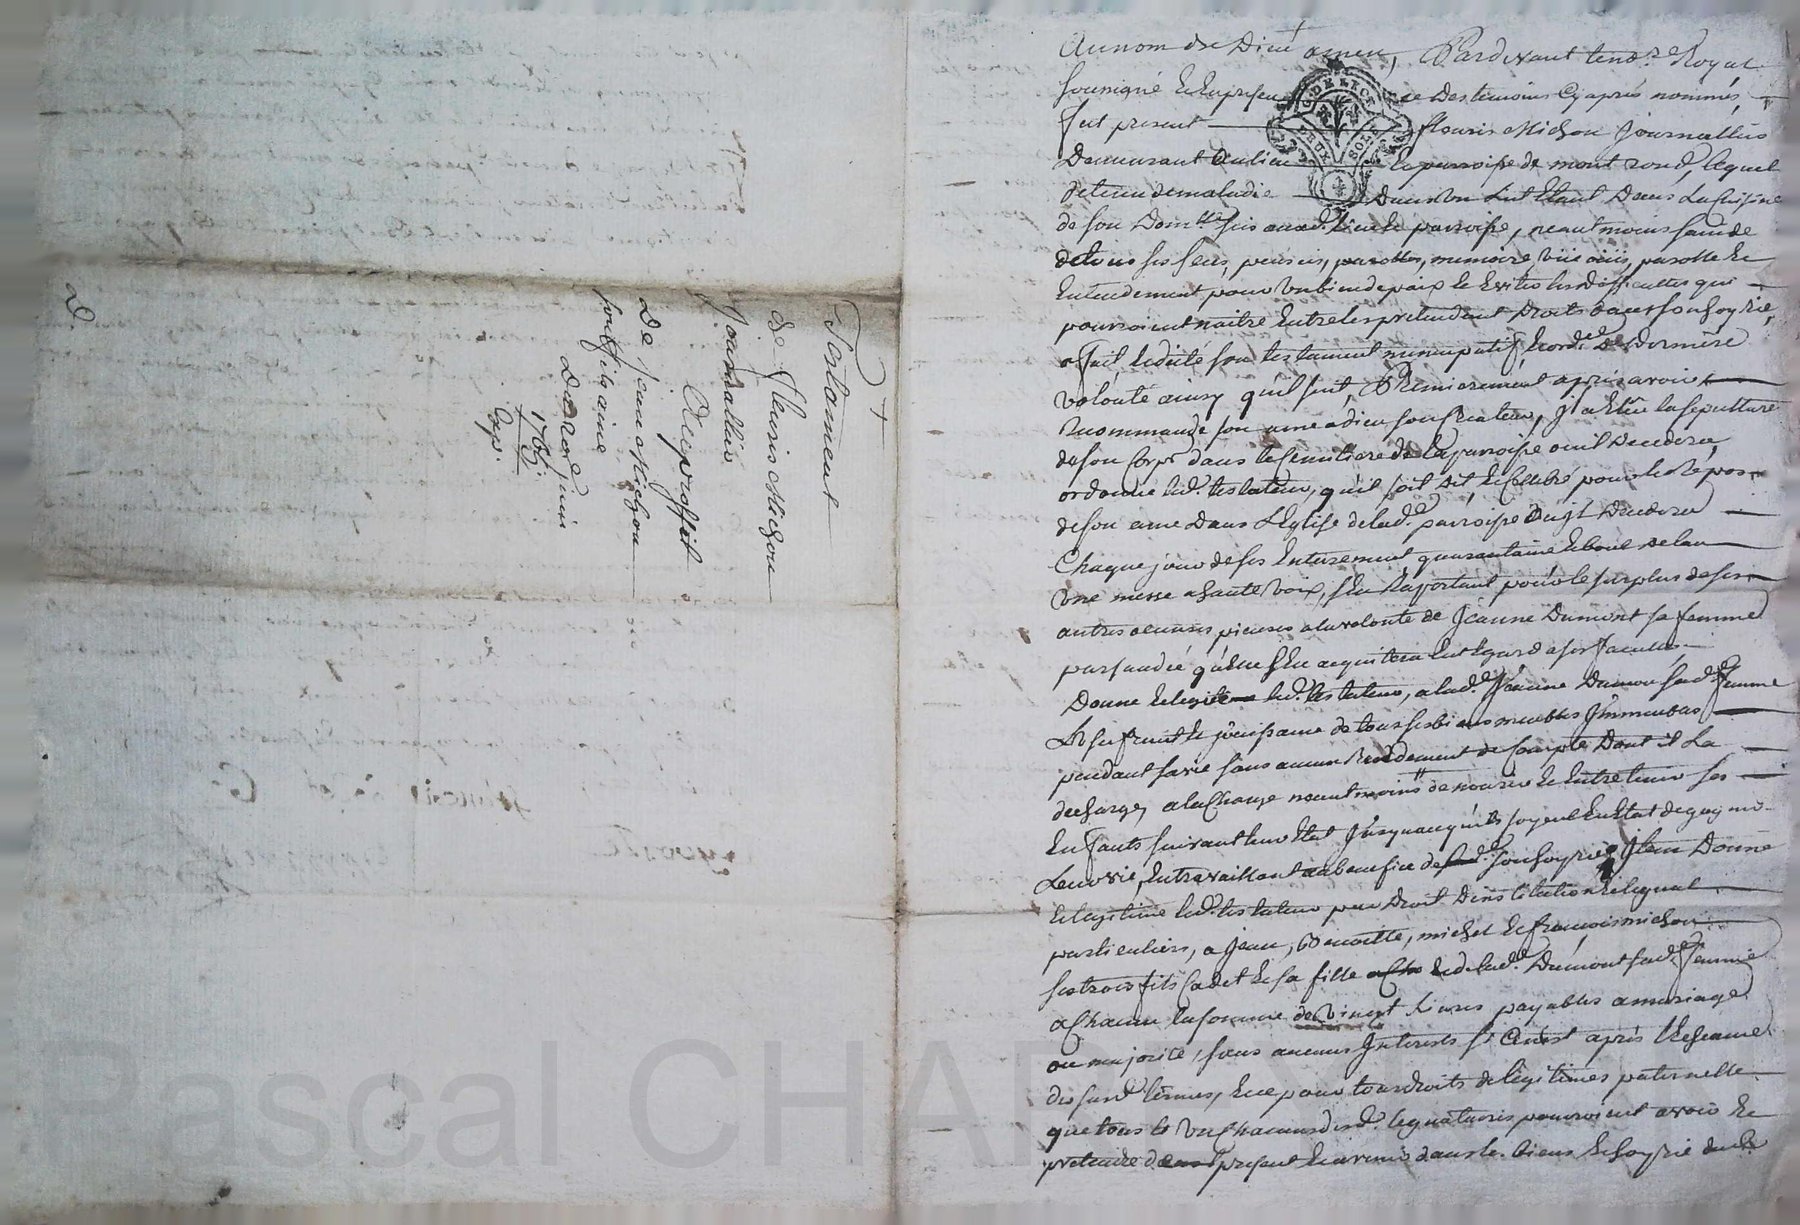 Testament
de fleuris Michou
Journallier
Au proffit
De jean Michou
son fils aine
Du 2e juin
1765.
Cop.
D.
Au nom de Dieu amen, Pardevant le no.re Royal
soussigné et en presence des temoins cy aprés nommés,
fut present fleuris Michou Journallier
Demeurant au lieu la parroisse de mont rond, lequel
detenu de maladie Dans son Lict Etant Dans La Cuisine
de son Dom.lle sis aud. lieu parroisse, neantmoins sain de
de tous ses sens, pensées, parolles, memoire, vüe ouïe, parolle Et
Entendement pour un bien de paix Et Eviter les difficultés qui
pourroient naitre Entre les pretendant Droits dans son hoyrie,
a fait Et dicté son testament nuncupatif Et ord.ce De Derniere
volonté ainsy qu'il suit, Premierement apres avoir
recommandé son ame a dieu son Createur, Il a Elu la sepulture
de son Corps dans le Cemitiere de la parroisse ou il Decedera,
ordonne led. testateur, qu'il soit dit Et Celebré pour le Repos
de son ame Dans L'Eglise de lad. parroisse Decedera
Chaque jour de ses Enterrement quarantaine Et bout de lan
une messe a haute voix, s'En Raportant pour le surplus de ses
autres oeuvres pieuses a la volonté de Jeanne Dumont sa femme
persuadé qu'Elle s'En acquittera Eut Egard a ses facultés
Donne Et legue led. testateur, a lad. Jeanne Dumont sad. femme
L'Usufruit Et jouissance de tous ses biens meubles Immeubles
pendant sa vie sans aucun Reddement de Compte Dont il La
decharge, a la Charge neantmoins de nourrir Et Entretenir ses
Enfants suivant leur Etat Jusqua ce qu'ils soyent En Etat de gagner
Leur vie, En travaillant au benefice de son hoyrie, Item Donne
Et legue led. testateur par Droit D'institution Et legat
particuliers, a Jean, Benoitte, michel Et françois michou
ses trois fils Cadet Et sa fille de lad. Dumont sad. femme
a Chacun la somme de vingt Livres payables a mariage
ou majorité, sans aucuns Interests si Ce n'est aprés l'Echeance
desd. termes, Et ce pour tous droits de legitimes paternelle
que tous Et un Chacuns desd. legataires pourroient avoir Et
pretendre present Et avenir dans les biens Et hoyrie dud.
Pascal CHAP